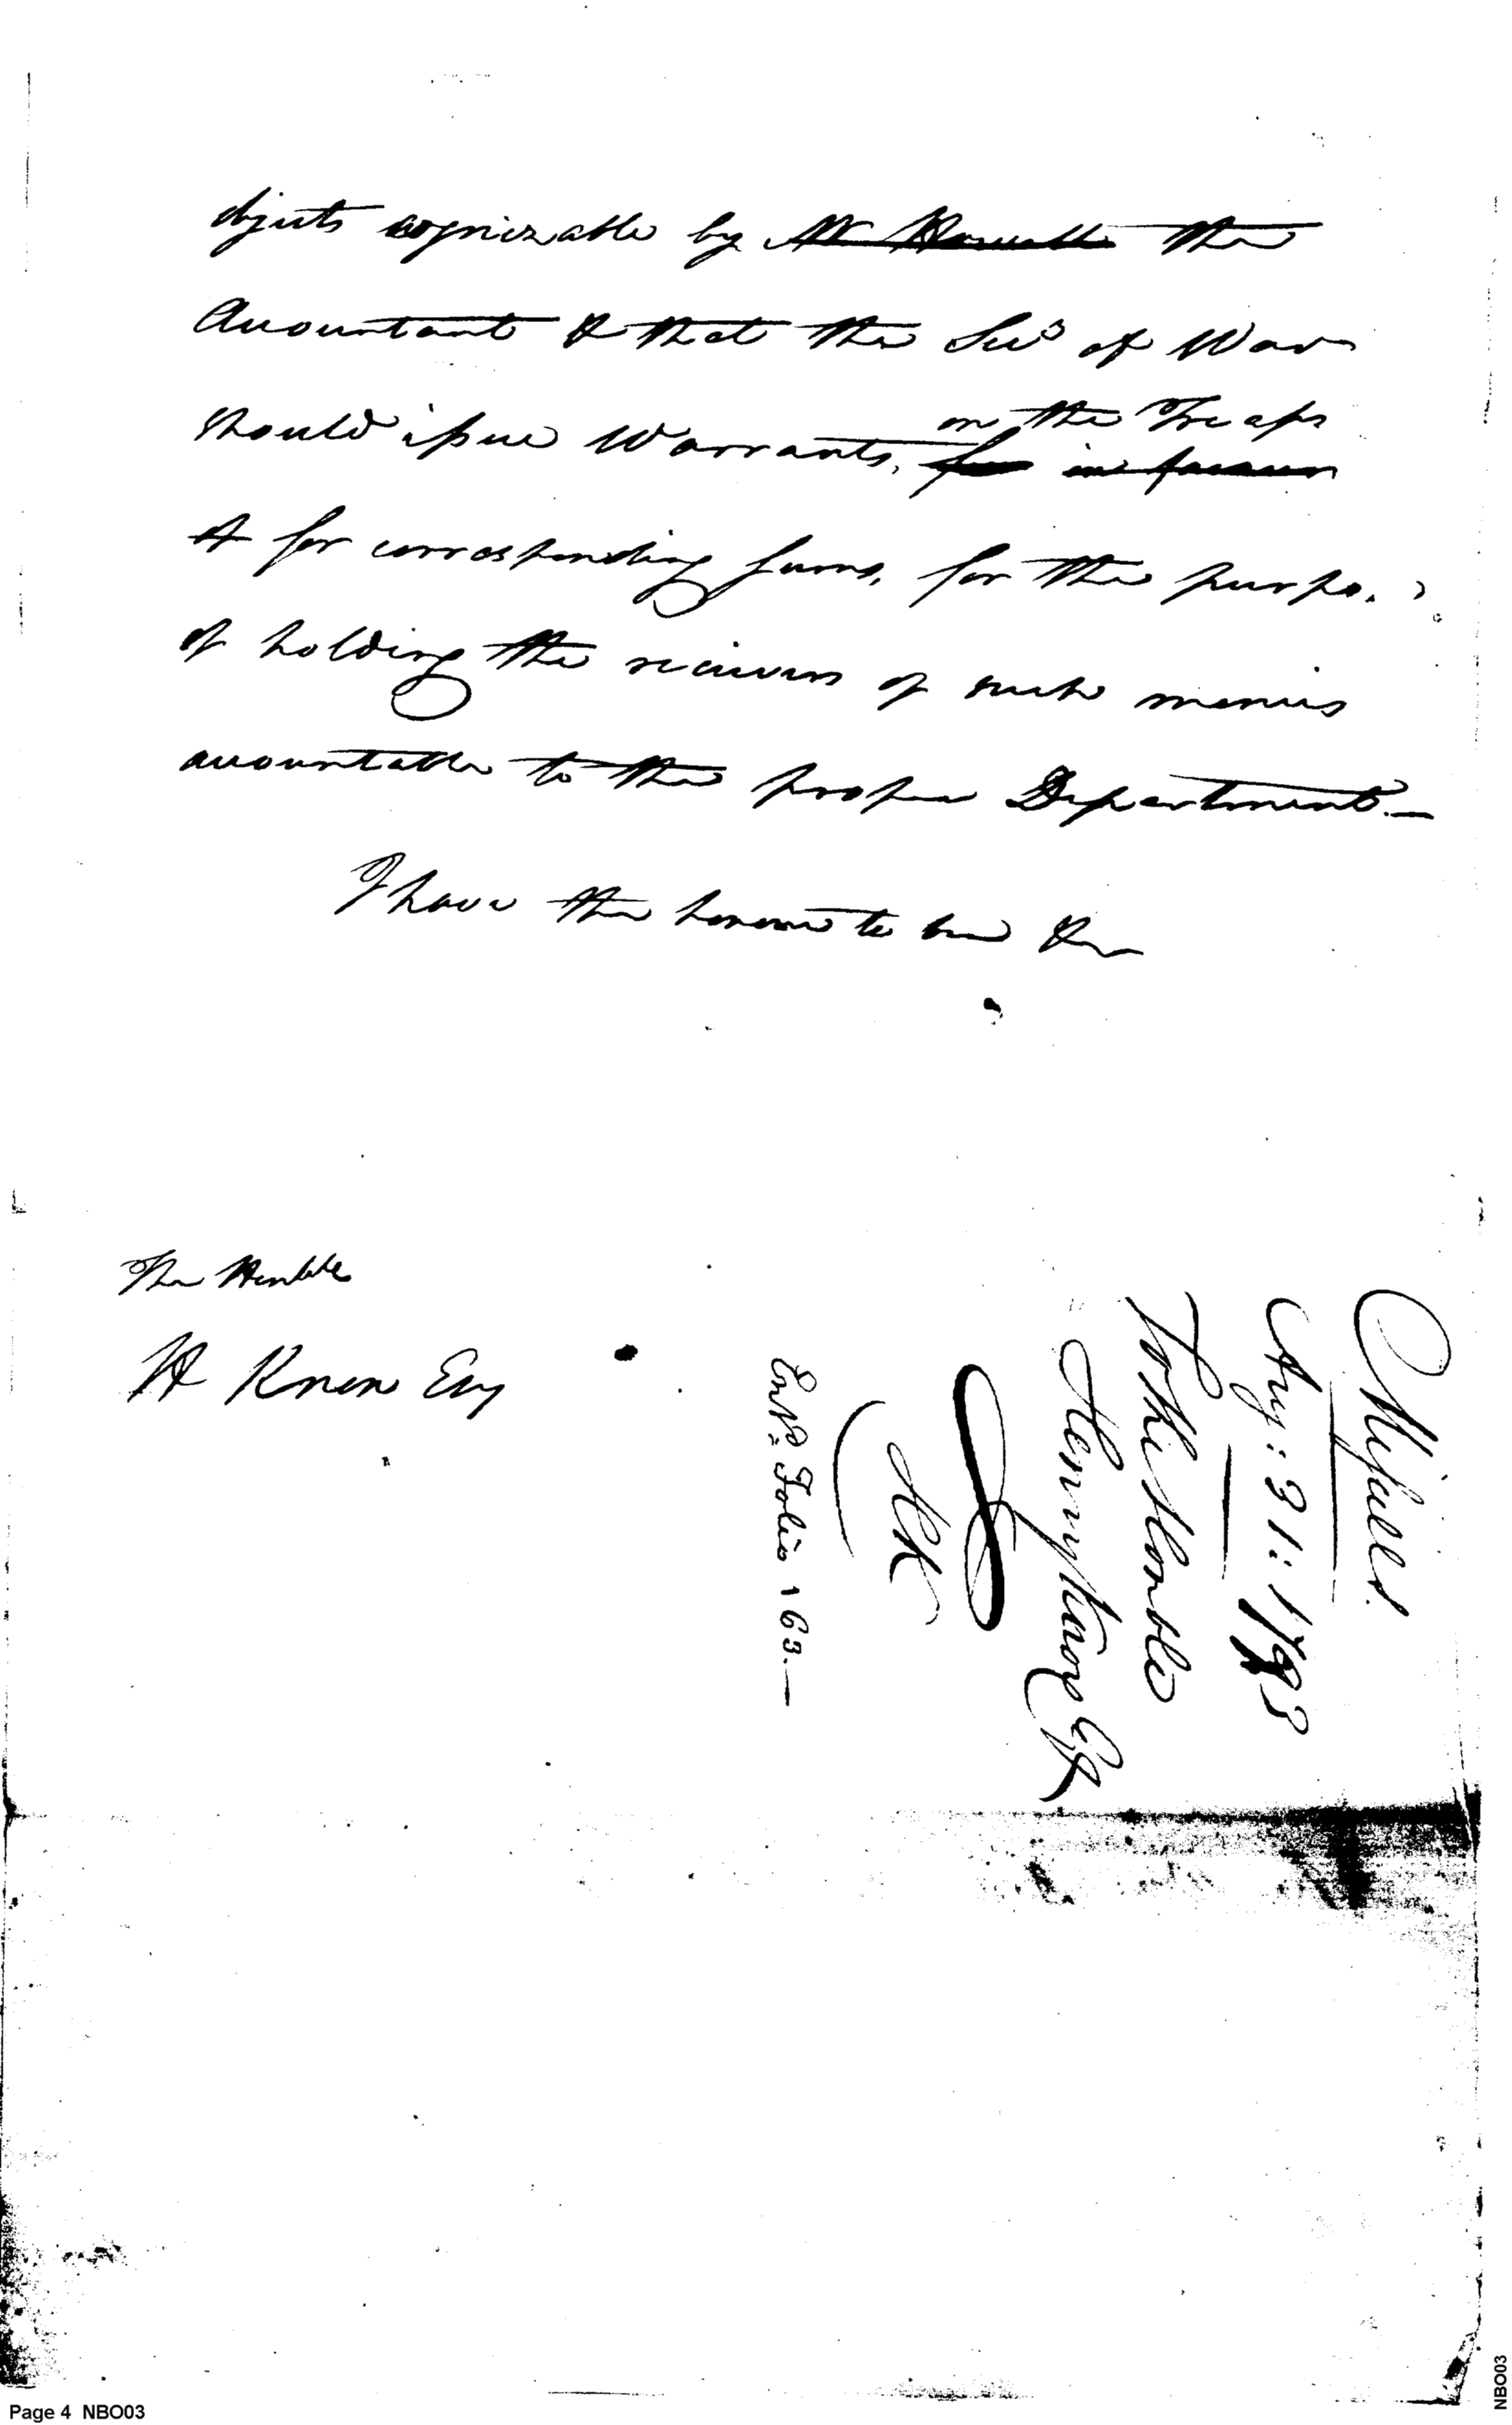 objects cognizable by Mr Howell the
Accountant & that the Secy of War
should issue Warrants, on the Treasy
for in favour
& for corresponding sums, for the purpo
of holding the receivers of such monies
accountable to the proper Department.—
I have the honour to be &c
The Honble
H Knox Esq
Offices.
Aug: 31: 1793
To the Honble
Henry Knox Esqr
HK
Entd. Folio 163.—
Page 4 NBO03
NBO03